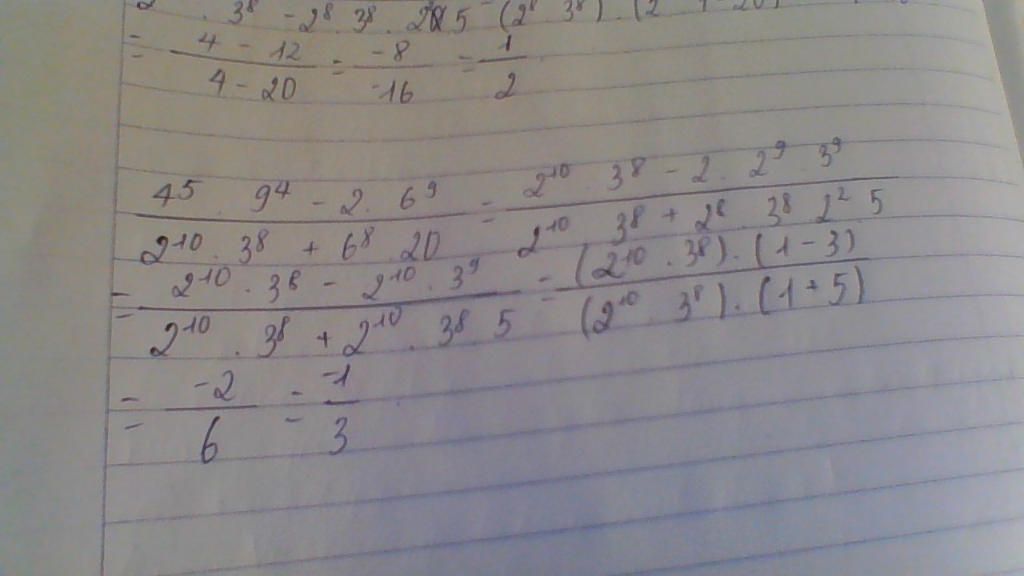 3⁸ - 2⁸ . 3⁸ . 2 5 (2⁸ 3⁸) . (2
= 4 - 12 / 4 - 20 = -8 / -16 = 1 / 2
4⁵ . 9⁴ - 2 . 6⁹ / 2¹⁰ . 3⁸ + 6⁸ . 20 = 2¹⁰ . 3⁸ - 2 . 2⁹ . 3⁹ / 2¹⁰ 3⁸ + 2⁸ . 3⁸ 2² 5
= 2¹⁰ . 3⁸ - 2¹⁰ . 3⁹ / 2¹⁰ . 3⁸ + 2¹⁰ . 3⁸ . 5 = (2¹⁰ . 3⁸) . (1 - 3) / (2¹⁰ 3⁸) . (1 + 5)
= -2 / 6 = -1 / 3